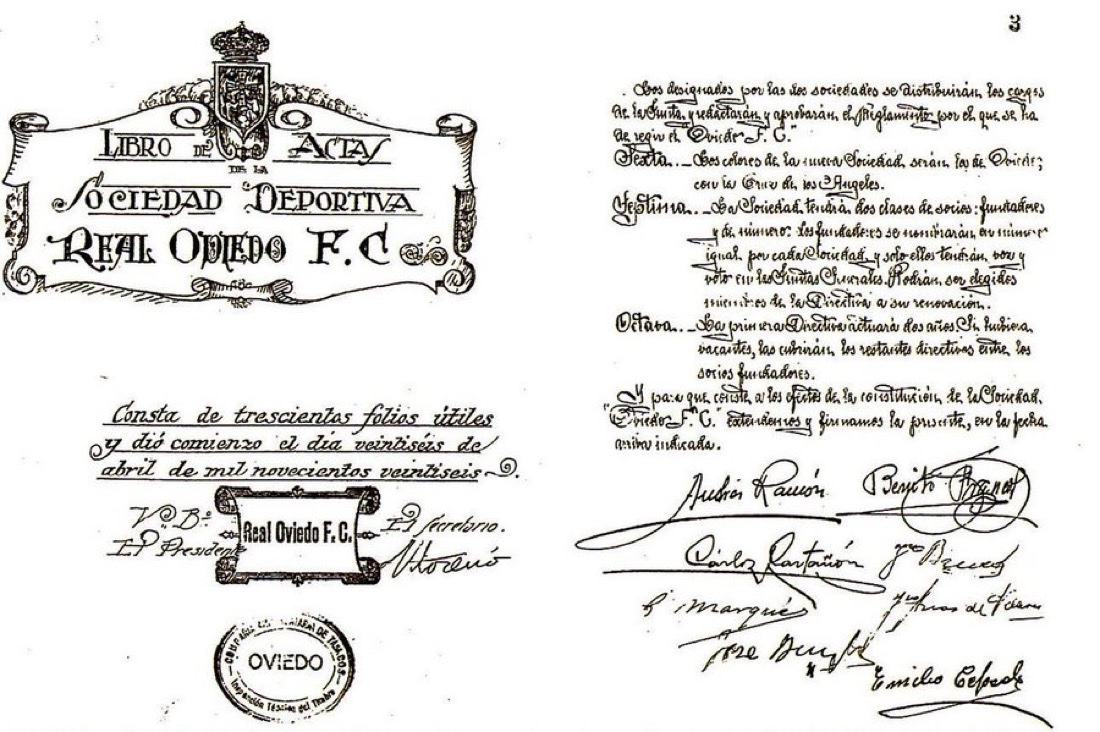 LIBRO DE ACTAS
DE LA
SOCIEDAD DEPORTIVA
REAL OVIEDO F. C
Consta de trescientos folios útiles
y dió comienzo el día veintiséis de
abril de mil novecientos veintiseis.
Vº Bº
El Presidente
Real Oviedo F. C.
El Secretario.
DE TABACOS
OVIEDO
Inspección Técnica del Timbre
3
Los designados por las dos sociedades se distribuirán los cargos
de la Junta, y redactarán y aprobarán el Reglamento por el que se ha
de regir el "Oviedo F. C."
Sexta.- Los colores de la nueva Sociedad serán los de Oviedo;
con la Cruz de los Angeles.
Septima.- La Sociedad tendrá dos clases de socios: fundadores
y de número: los fundadores se nombrarán en número
igual por cada Sociedad, y solo ellos tendrán voz y
voto en las Juntas Generales. Podrán ser elegidos
miembros de la Directiva a su renovación.
Octava.- La primera Directiva actuará dos años. Si hubiera
vacantes, las cubrirán los restantes directivos entre los
socios fundadores.
Y para que conste a los efectos de la constitución de la Sociedad
"Oviedo F. C." extendemos y firmamos la presente, en la fecha
arriba indicada.
Andrés Ramón
Benito
Cárlos
Marqués
José
Emilio